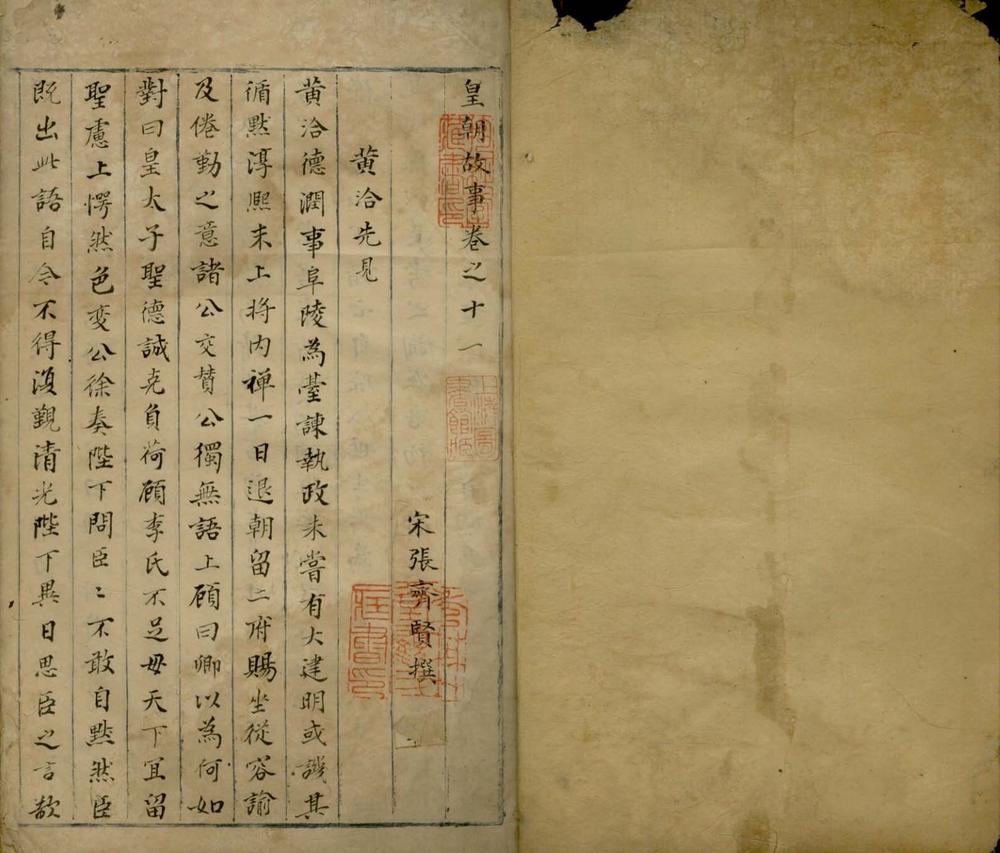 皇朝故事卷之十一
宋張齊賢撰
黄洽先見
黄洽德潤事阜陵為臺諫執政未嘗有大建明或譏其
循黙淳熈末上将内禅一日退朝留二府賜坐從容諭
及倦勤之意諸公交賛公獨無語上顧曰卿以為何如
對曰皇太子聖德誠克負荷顧李氏不足母天下宜留
聖慮上愕然色变公徐奏陛下問臣〻不敢自黙然臣
既出此語自今不得復覲清光陛下異日思臣之言欲